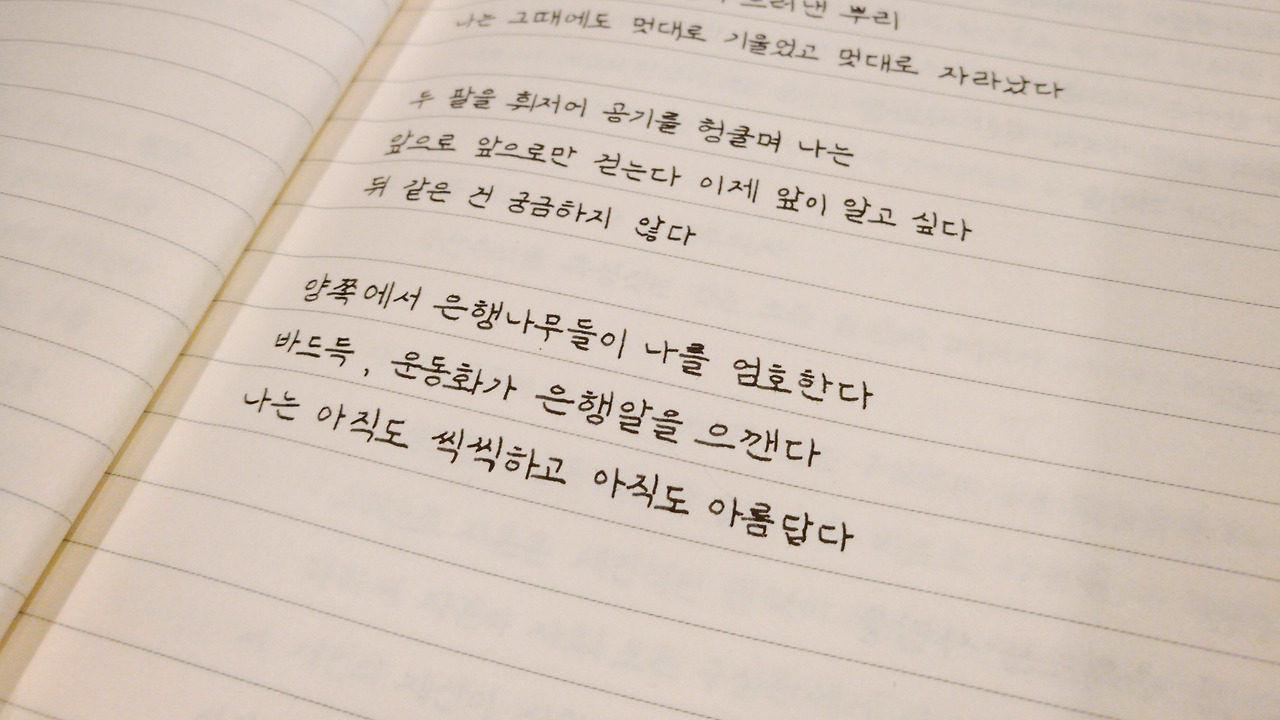 뿌리
나는 그때에도 멋대로 기울었고 멋대로 자라났다
두 팔을 휘저어 공기를 헝클며 나는
앞으로 앞으로만 걷는다 이제 앞이 알고 싶다
뒤 같은 건 궁금하지 않다
양쪽에서 은행나무들이 나를 엄호한다
바드득, 운동화가 은행알을 으깬다
나는 아직도 씩씩하고 아직도 아름답다